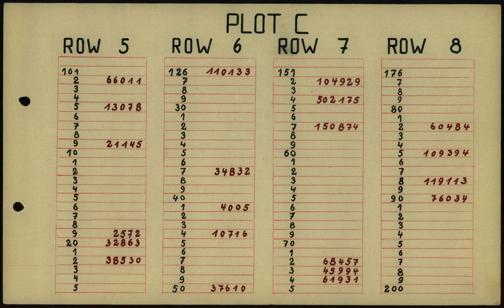 PLOT C
ROW 5
101
2 66011
3
4
5 13078
6
7
8
9 21145
10
1
2
3
4
5
6
7
8
9 2572
20 32863
1
2 38530
3
4
5
ROW 6
126 110133
7
8
9
30
1
2
3
4
5
6
7 34832
8
9
40
1 4005
2
3
4 10716
5
6
7
8
9
50 37610
ROW 7
151
2 104929
3
4 502175
5
6
7 150874
8
9
60
1
2
3
4
5
6
7
8
9
70
1
2 68457
3 45994
4 61931
5
ROW 8
176
7
8
9
80
1
2 60484
3
4
5 109394
6
7
8 119113
9
90 76034
1
2
3
4
5
6
7
8
9
200